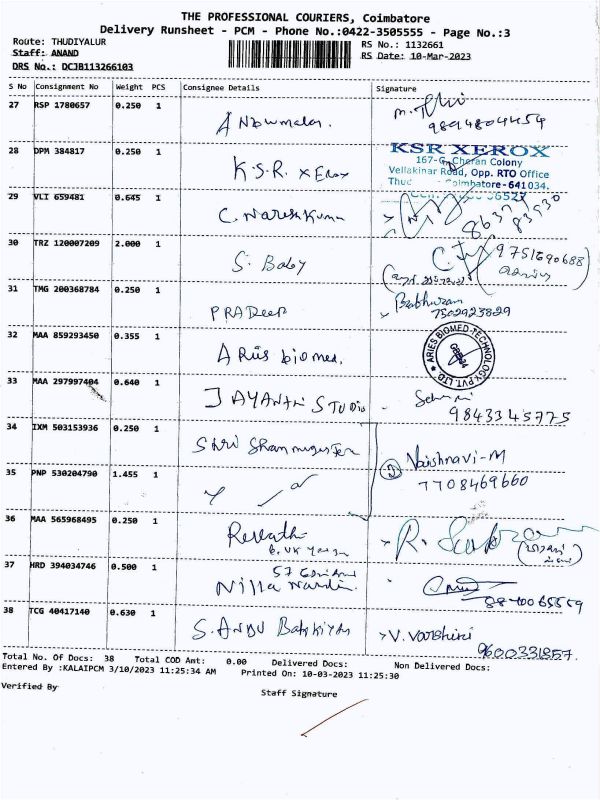 THE PROFESSIONAL COURIERS, Coimbatore
Delivery Runsheet - PCM - Phone No.:0422-3505555 - Page No.:3
Route: THUDIYALUR
RS No.: 1132661
Staff: ANAND
RS Date: 10-Mar-2023
DRS No.: DCJB113266103
S No Consignment No Weight PCS Consignee Details Signature
27 RSP 1780657 0.250 1
9894804454
28 DPM 384817 0.250 1 K.S.R. XEROX
KSR XEROX
167-G, Cheran Colony
Vellakinar Road, Opp. RTO Office
Thud Coimbatore-641034.
29 VLI 659481 0.645 1 C. Nareshkumar
30 TRZ 120007209 2.000 1 S. Baby
9751690688
31 TMG 200368784 0.250 1 PRADEEP
7502923829
32 MAA 859293450 0.355 1 ARIES biomed.
ARIES BIOMED TECHNOLOGY PVT. LTD
33 MAA 297997404 0.640 1 JAYANTHI STUDIO
9843345775
34 IXM 503153936 0.250 1 Shri Shanmuga
2 Vaishnavi-M
7708469660
35 PNP 530204790 1.455 1
36 MAA 565968495 0.250 1 Revathi
R.
37 HRD 394034746 0.500 1
38 TCG 40417140 0.630 1 S. ANBU
V. Varshini
9600331857.
Total No. Of Docs: 38 Total COD Amt: 0.00 Delivered Docs: Non Delivered Docs:
Entered By :KALAIPCM 3/10/2023 11:25:34 AM Printed On: 10-03-2023 11:25:30
Verified By
Staff Signature